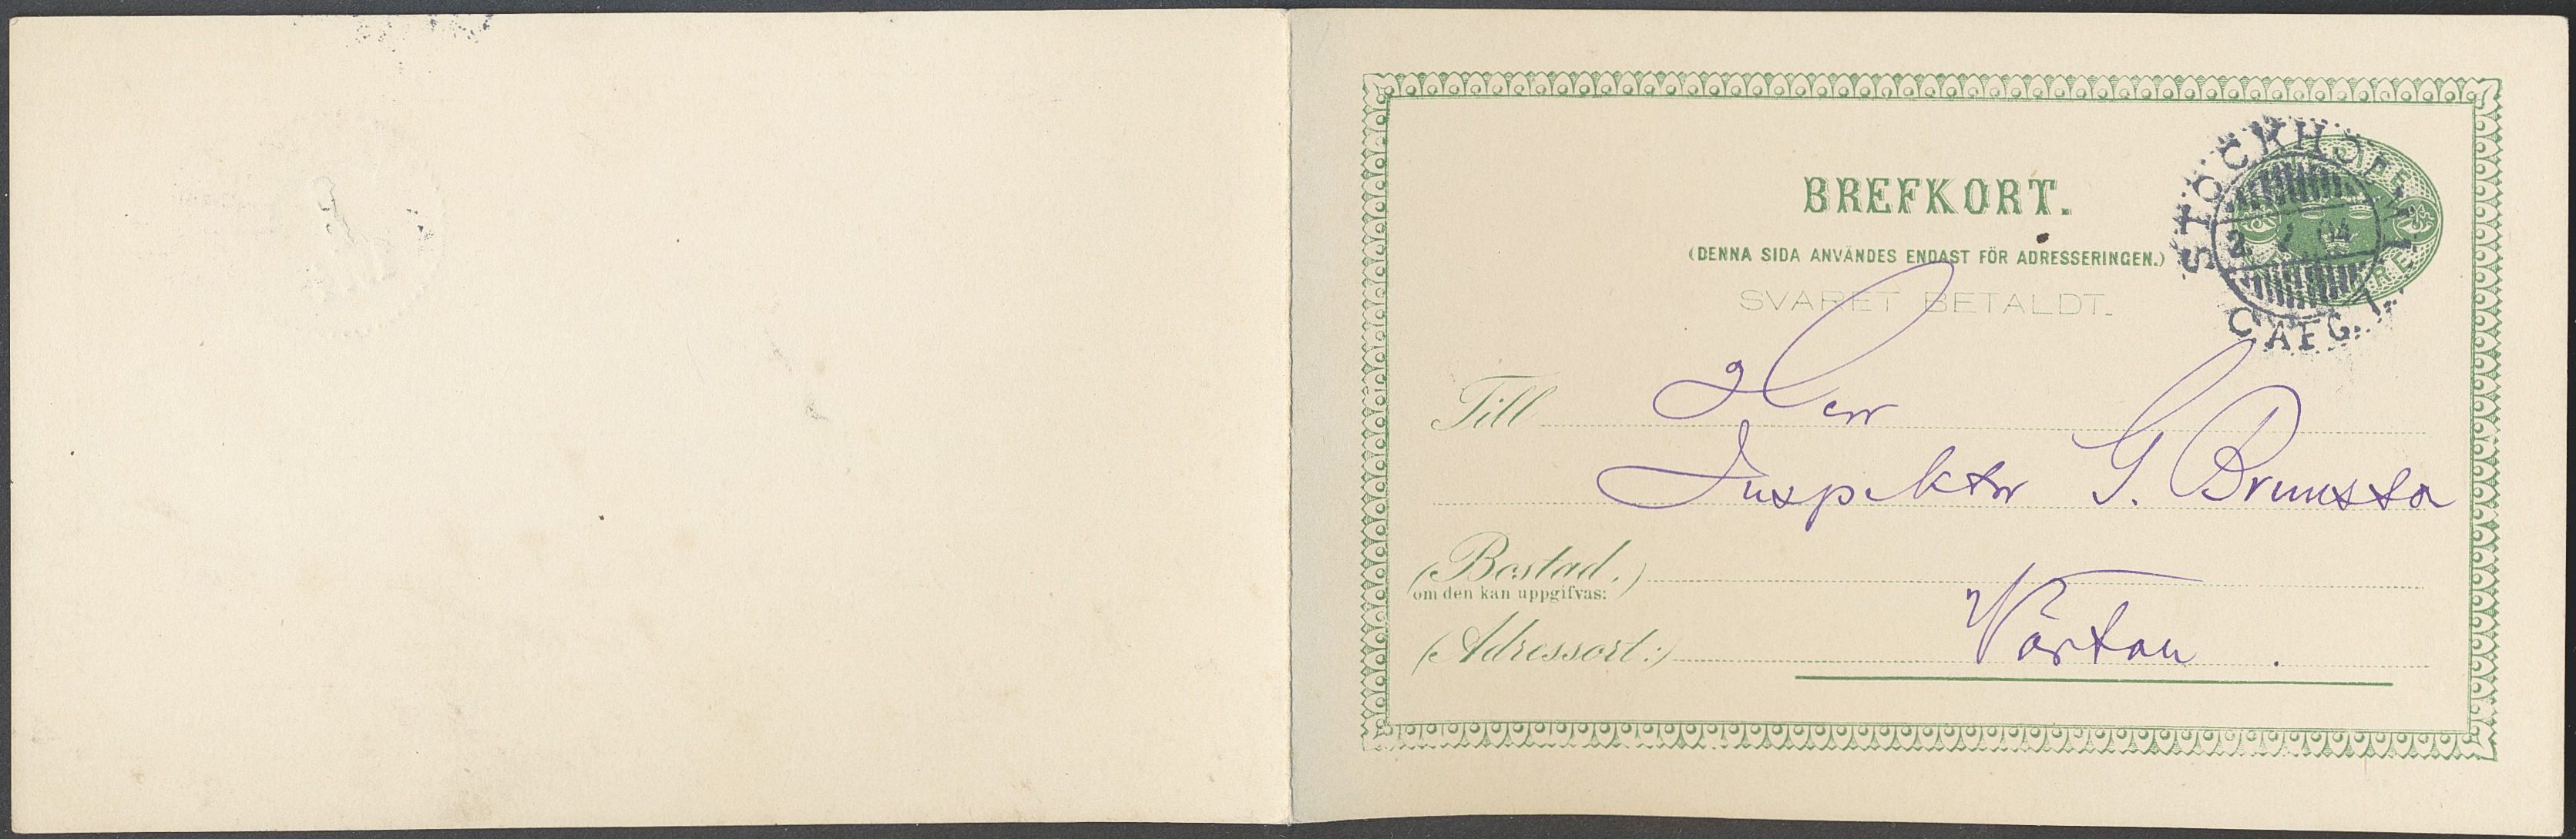 BREFKORT.
(DENNA SIDA ANVÄNDES ENDAST FÖR ADRESSERINGEN.)
SVARET BETALDT.
STOCKHOLM 1
2. 1. 04
C. AFG.
Till Herr
Inspektor G. Brunsta
(Bostad,)
om den kan uppgifvas:
(Adressort:) Värtan.